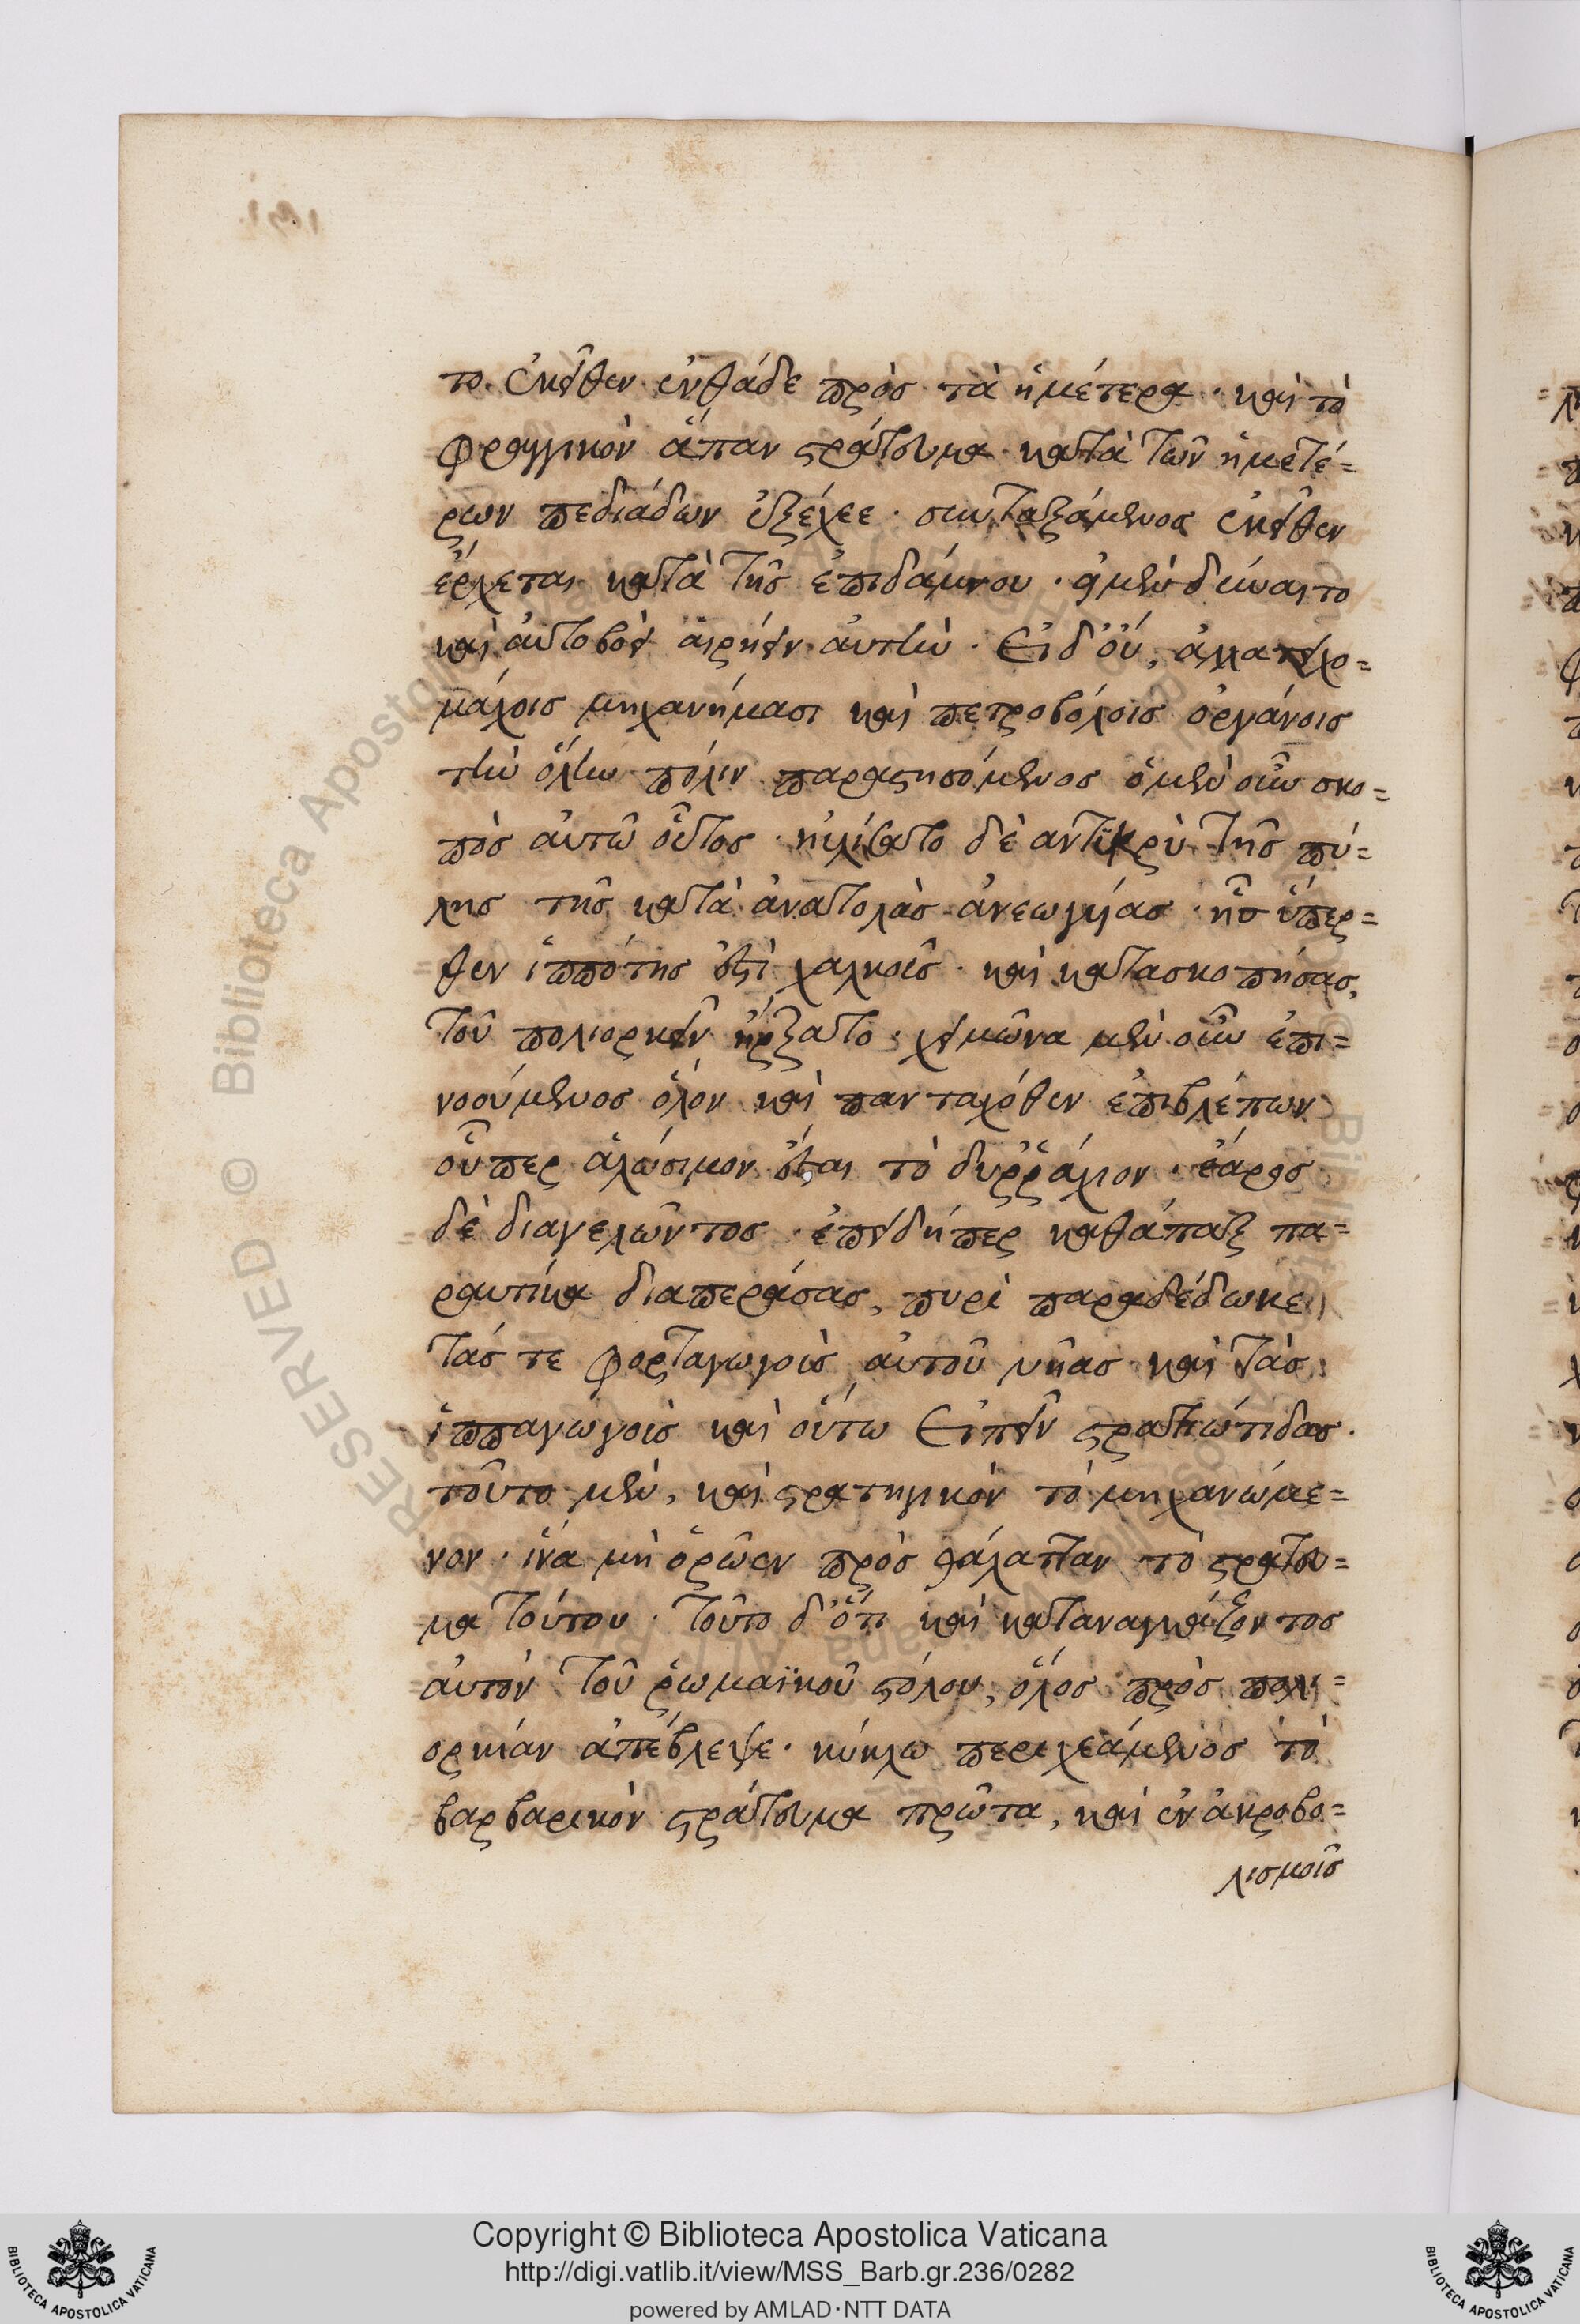 το ἐκεῖθεν ἐνθάδε πρὸς τὰ ἡμέτερα · καὶ τὸ
φραγγικὸν ἅπαν στράτευμα κατὰ τῶν ἡμετέ=
ρων πεδιάδων ἐξέχεε · συνταξάμενος ἐκεῖθεν
ἔρχεται κατὰ τῆς ἐπιδάμνου · εἰ μὲν δύναιτο
καὶ αὐτοβοεὶ αἱρήσειν αὐτὴν · Εἰ δ' οὔ, ἀλλὰ τειχο=
μάχοις μηχανήμασι καὶ πετροβόλοις ὀργάνοις
τὴν ὅλην πόλιν παραστησόμενος ὁ μὲν οὖν σκο=
πὸς αὐτῶ οὗτος · ηὐλίσατο δὲ ἀντικρὺ τῆς πύ=
λης τῆς κατὰ ἀνατολὰς ἀνεωγυίας · ἧς ὕπερ=
θεν ἱππότης ἐστὶ χαλκοῦς · καὶ κατασκοπήσας,
τοῦ πολιορκεῖν ἤρξατο · χειμῶνα μὲν οὖν ἐπι=
νοούμενος ὅλον καὶ πανταχόθεν ἐπιβλέπων
οὗπερ ἁλώσιμον ἔσται τὸ δυῤῥάχιον · ἔαρος
δὲ διαγελῶντος · ἐπειδήπερ καθάπαξ πα=
ραυτίκα διαπεράσας, πυρὶ παραδέδωκε
τάς τε φορταγωγοὺς αὐτοῦ νῆας καὶ τὰς
ἱππαγωγοὺς καὶ οὕτω Εἰπεῖν στρατιώτιδας ·
τοῦτο μὲν, καὶ στρατηγικὸν τὸ μηχανώμε=
νον · ἵνα μὴ ὁρῶεν πρὸς θάλατταν τὸ στράτευ=
μα τούτου · τοῦτο δ' ὅτι καὶ καταναγκάζοντος
αὐτὸν τοῦ ῥωμαϊκοῦ στόλου, ὅλος πρὸς πολι=
ορκίαν ἀπέβλεψε · κύκλω περιχεάμενος τὸ
βαρβαρικὸν στράτευμα πρῶτα, καὶ ἐν ἀκροβο=
λισμοῖς
Copyright © Biblioteca Apostolica Vaticana
http://digi.vatlib.it/view/MSS_Barb.gr.236/0282
powered by AMLAD·NTT DATA